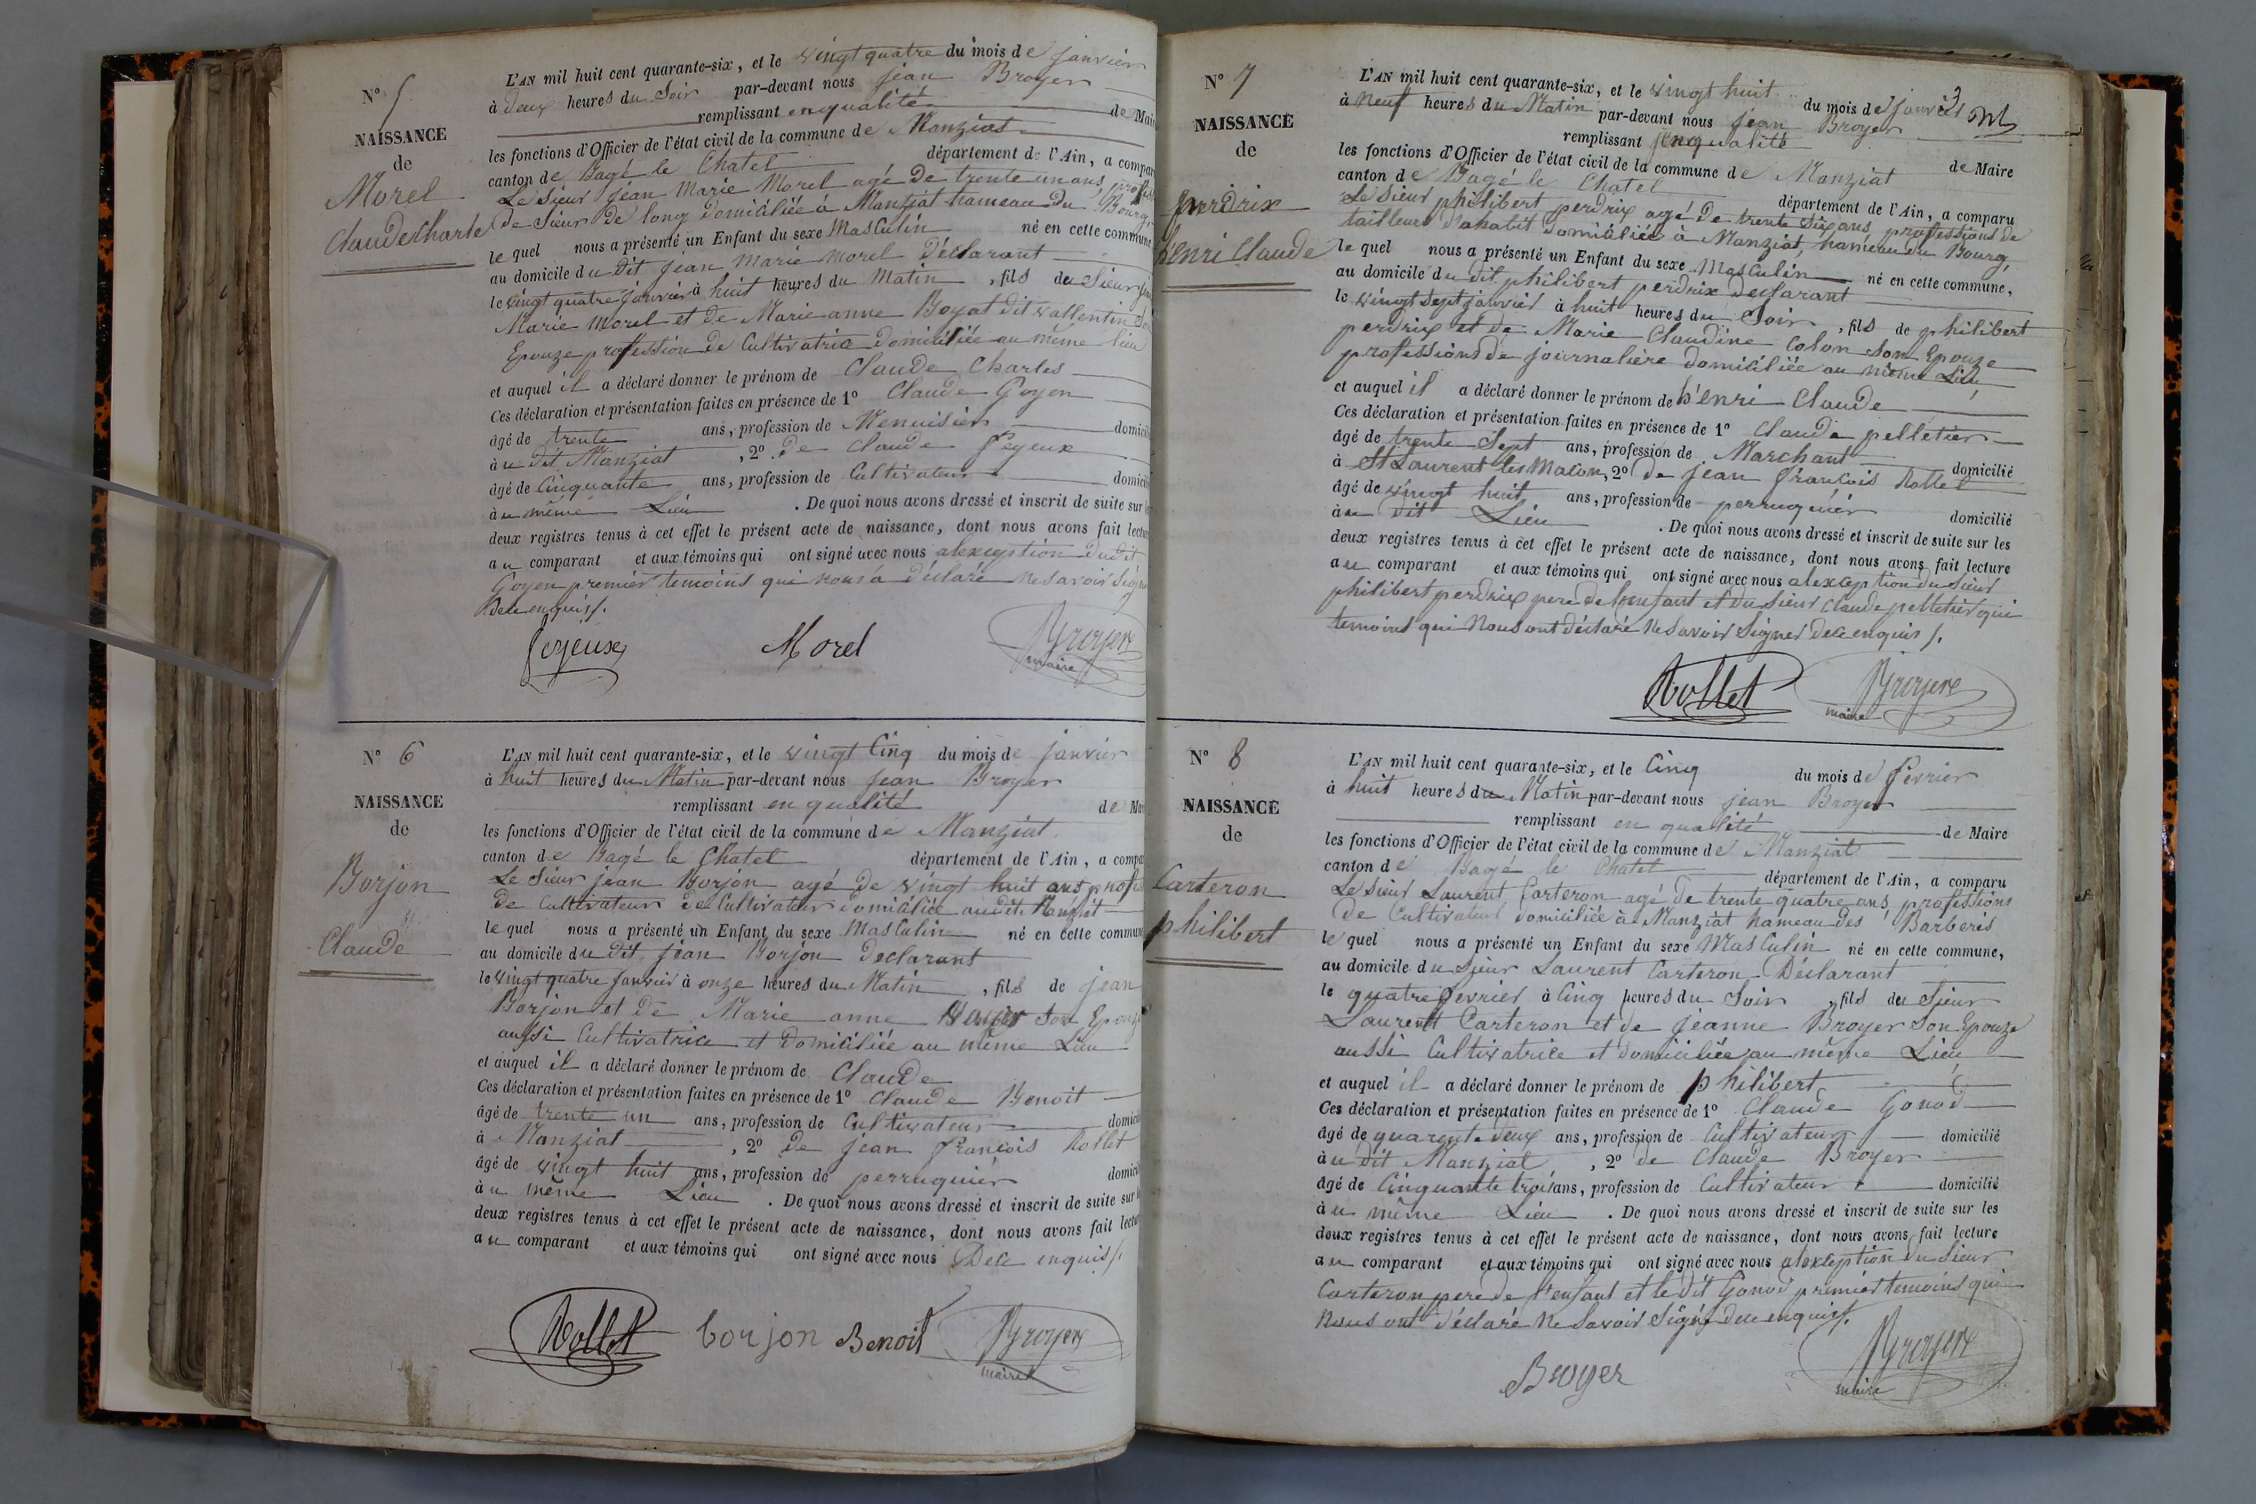 N° 5
NAISSANCE
de
Morel
Claude Charle
L'AN mil huit cent quarante-six, et le vingt quatre du mois de janvier
à deux heures du Soir par-devant nous jean Broyer
remplissant en qualité de Mai
les fonctions d'Officier de l'état civil de la commune de Manziat
canton de Bagé le Chatel département de l'Ain, a compar
Le Sieur jean Marie Morel agé de trente un ans, profess
de Sieur de long domiciliée à Manziat hameau du Bourg,
le quel nous a présenté un Enfant du sexe Masculin né en cette commune
au domicile du dit jean Marie Morel Déclarant
le vingt quatre janvier à huit heures du Matin, fils du Sieur jean
Marie Morel et de Marie anne Boyat dit vallentin son
Epouze profession de Cultivatrice domiciliée au même lieu
et auquel il a déclaré donner le prénom de Claude Charles
Ces déclaration et présentation faites en présence de 1° Claude Goyon
âgé de trente ans, profession de Menuisier domicili
à u dit Manziat, 2° de Claude Peyeux
âgé de Cinquante ans, profession de Cultivateur domicili
à u même Lieu. De quoi nous avons dressé et inscrit de suite sur les
deux registres tenus à cet effet le présent acte de naissance, dont nous avons fait lectur
au comparant et aux témoins qui ont signé avec nous alexception du dit
Goyon premier temoins qui nous a déclaré ne savoir Signé
Dece enquis/.
Morel
Broyer
maire
N° 6
NAISSANCE
de
Borjon
Claude
L'AN mil huit cent quarante-six, et le vingt Cinq du mois de janvier
à huit heures du Matin par-devant nous jean Broyer
remplissant en qualité de Mai
les fonctions d'Officier de l'état civil de la commune de Manziat
canton de Bagé le Chatel département de l'Ain, a compa
Le Sieur jean Borjon agé de vingt huit ans profes
de Cultivateur de Cultivateur domiciliée audit Manziat
le quel nous a présenté un Enfant du sexe Masculin né en cette commune
au domicile du dit jean Borjon Declarant
le vingt quatre janvier à onze heures du Matin, fils de jean
Borjon et de Marie anne son Epouze
aussi Cultivatrice et domiciliée au même Lieu
et auquel il a déclaré donner le prénom de Claude
Ces déclaration et présentation faites en présence de 1° Claude Benoit
âgé de trente un ans, profession de Cultivateur domicili
à Manziat, 2° de jean françois Rollet
âgé de vingt huit ans, profession de perruquier domicili
à u même Lieu. De quoi nous avons dressé et inscrit de suite sur le
deux registres tenus à cet effet le présent acte de naissance, dont nous avons fait lectur
au comparant et aux témoins qui ont signé avec nous Dece enquis/.
Rollet borjon Benoit Broyer
maire
N° 7
NAISSANCE
de
perdrix
henri Claude
L'AN mil huit cent quarante-six, et le vingt huit du mois de janvier
3
à Neuf heures du Matin par-devant nous jean Broyer
remplissant en qualité de Maire
les fonctions d'Officier de l'état civil de la commune de Manziat
canton de Bagé le Chatel département de l'Ain, a comparu
Le Sieur philibert perdrix agé de trente Six ans, professions de
tailleur d'ahabit domiciliée à Manziat, hameau du Bourg,
le quel nous a présenté un Enfant du sexe Masculin né en cette commune,
au domicile du dit philibert perdrix declarant
le vingt Sept janvier à huit heures du Soir, fils de philibert
perdrix et de Marie Claudine Colon Son Epouze
professions de journalière domiciliée au même Lieu,
et auquel il a déclaré donner le prénom de hénri Claude
Ces déclaration et présentation faites en présence de 1° Claude pelletier
âgé de trente Sept ans, profession de Marchant domicilié
à St Laurent les Macon, 2° de jean françois Rollet
âgé de vingt huit ans, profession de perruquier domicilié
à u dit Lieu. De quoi nous avons dressé et inscrit de suite sur les
deux registres tenus à cet effet le présent acte de naissance, dont nous avons fait lecture
au comparant et aux témoins qui ont signé avec nous alexception du Sieur
philibert perdrix pere de lenfant et du Sieur Claude pelletier qui
temoins qui Nous ont déclaré Ne savoir Signer dece enquis/.
Rollet Broyer
maire
N° 8
NAISSANCE
de
Carteron
philibert
L'AN mil huit cent quarante-six, et le Cinq du mois de fevrier
à huit heures du Matin par-devant nous jean Broyer
remplissant en qualité de Maire
les fonctions d'Officier de l'état civil de la commune de Manziat
canton de Bagé le Chatel département de l'Ain, a comparu
Le Sieur Laurent Carteron agé de trente quatre ans, professions
de Cultivateur domiciliée à Manziat hameau des Barberis
le quel nous a présenté un Enfant du sexe Masculin né en cette commune,
au domicile du Sieur Laurent Carteron Déclarant
le quatre fevrier à Cinq heures du Soir, fils du Sieur
Laurent Carteron et de jeanne Broyer Son Epouze
aussi Cultivatrice et domiciliée au même Lieu
et auquel il a déclaré donner le prénom de philibert
Ces déclaration et présentation faites en présence de 1° Claude Gonod
âgé de quarente deux ans, profession de Cultivateur domicilié
à u dit Manziat, 2° de Claude Broyer
âgé de Cinquante trois ans, profession de Cultivateur domicilié
à u même Lieu. De quoi nous avons dressé et inscrit de suite sur les
deux registres tenus à cet effet le présent acte de naissance, dont nous avons fait lecture
au comparant et aux témoins qui ont signé avec nous alexception du Sieur
Carteron pere de l'enfant et le dit Gonod premier temoins qui
Nous ont déclaré Ne Savoir Signé dece enquis/.
Broyer Broyer
maire